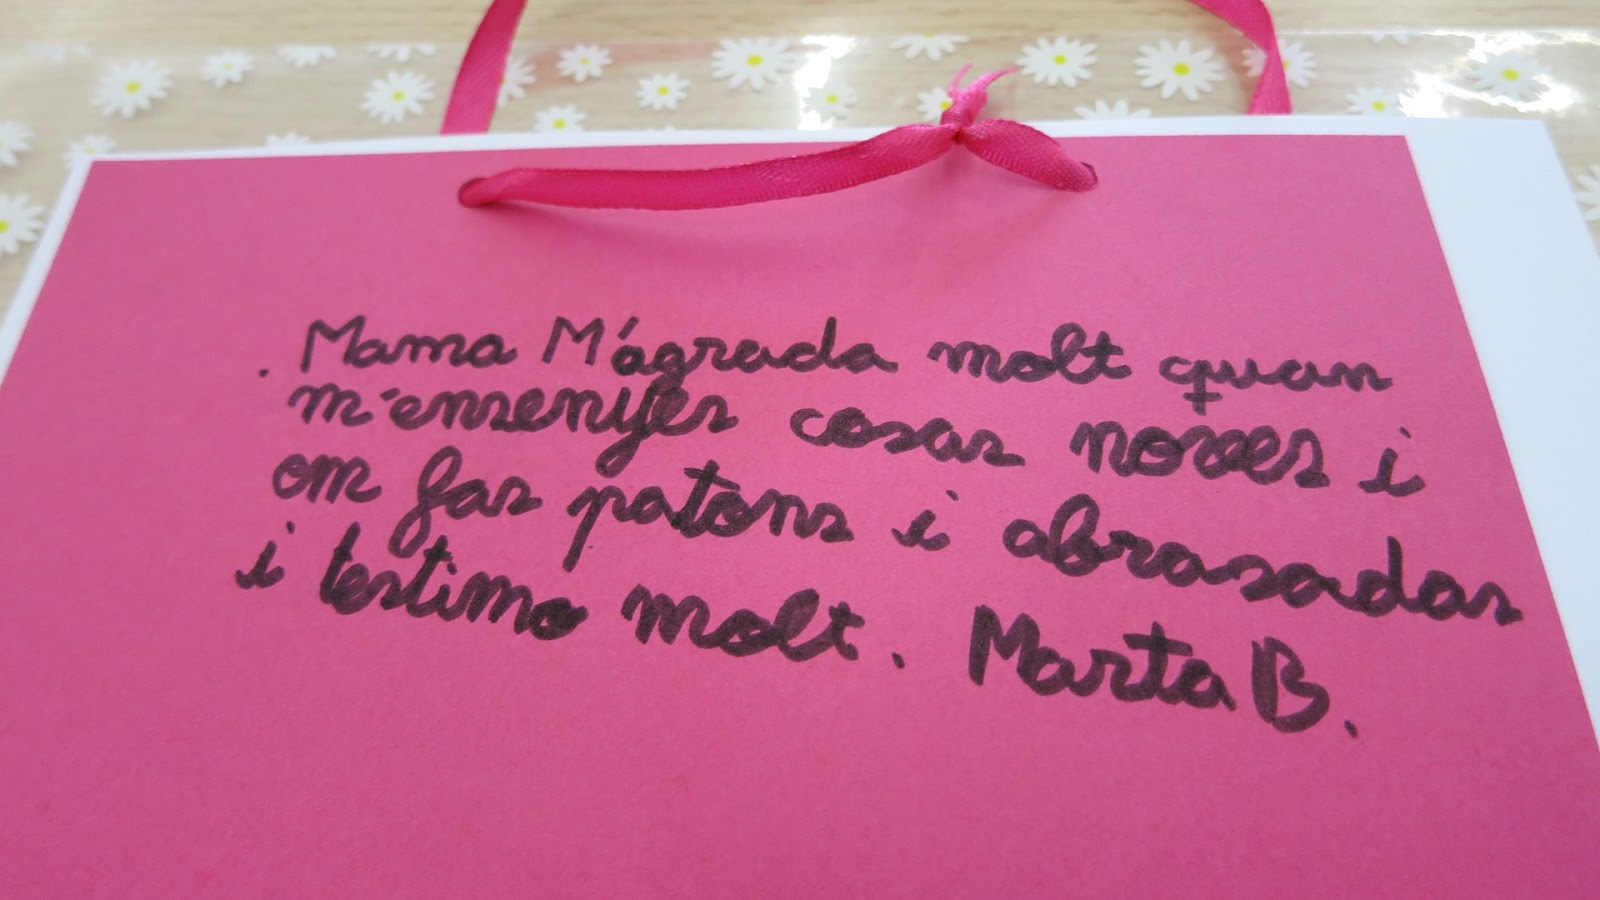 . Mama M'agrada molt quan
m'ensenyes cosas noves i
om fas patons i abrasadas
i testimo molt. Marta B.